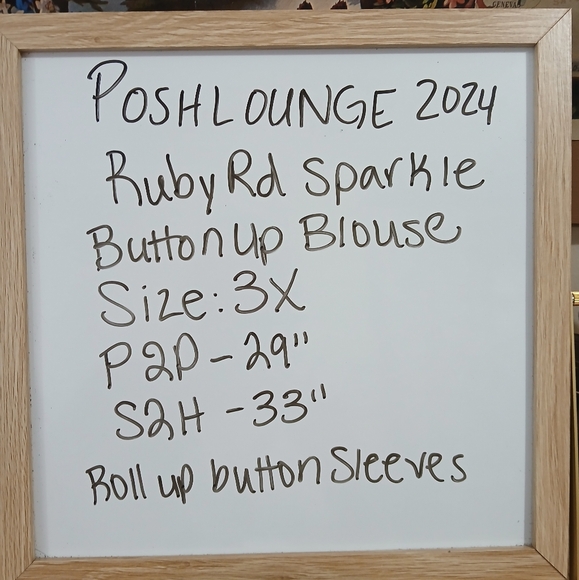 GENEVA
POSHLOUNGE 2024
Ruby Rd Sparkle
Button Up Blouse
Size: 3X
P2P - 29"
S2H - 33"
Roll up button Sleeves